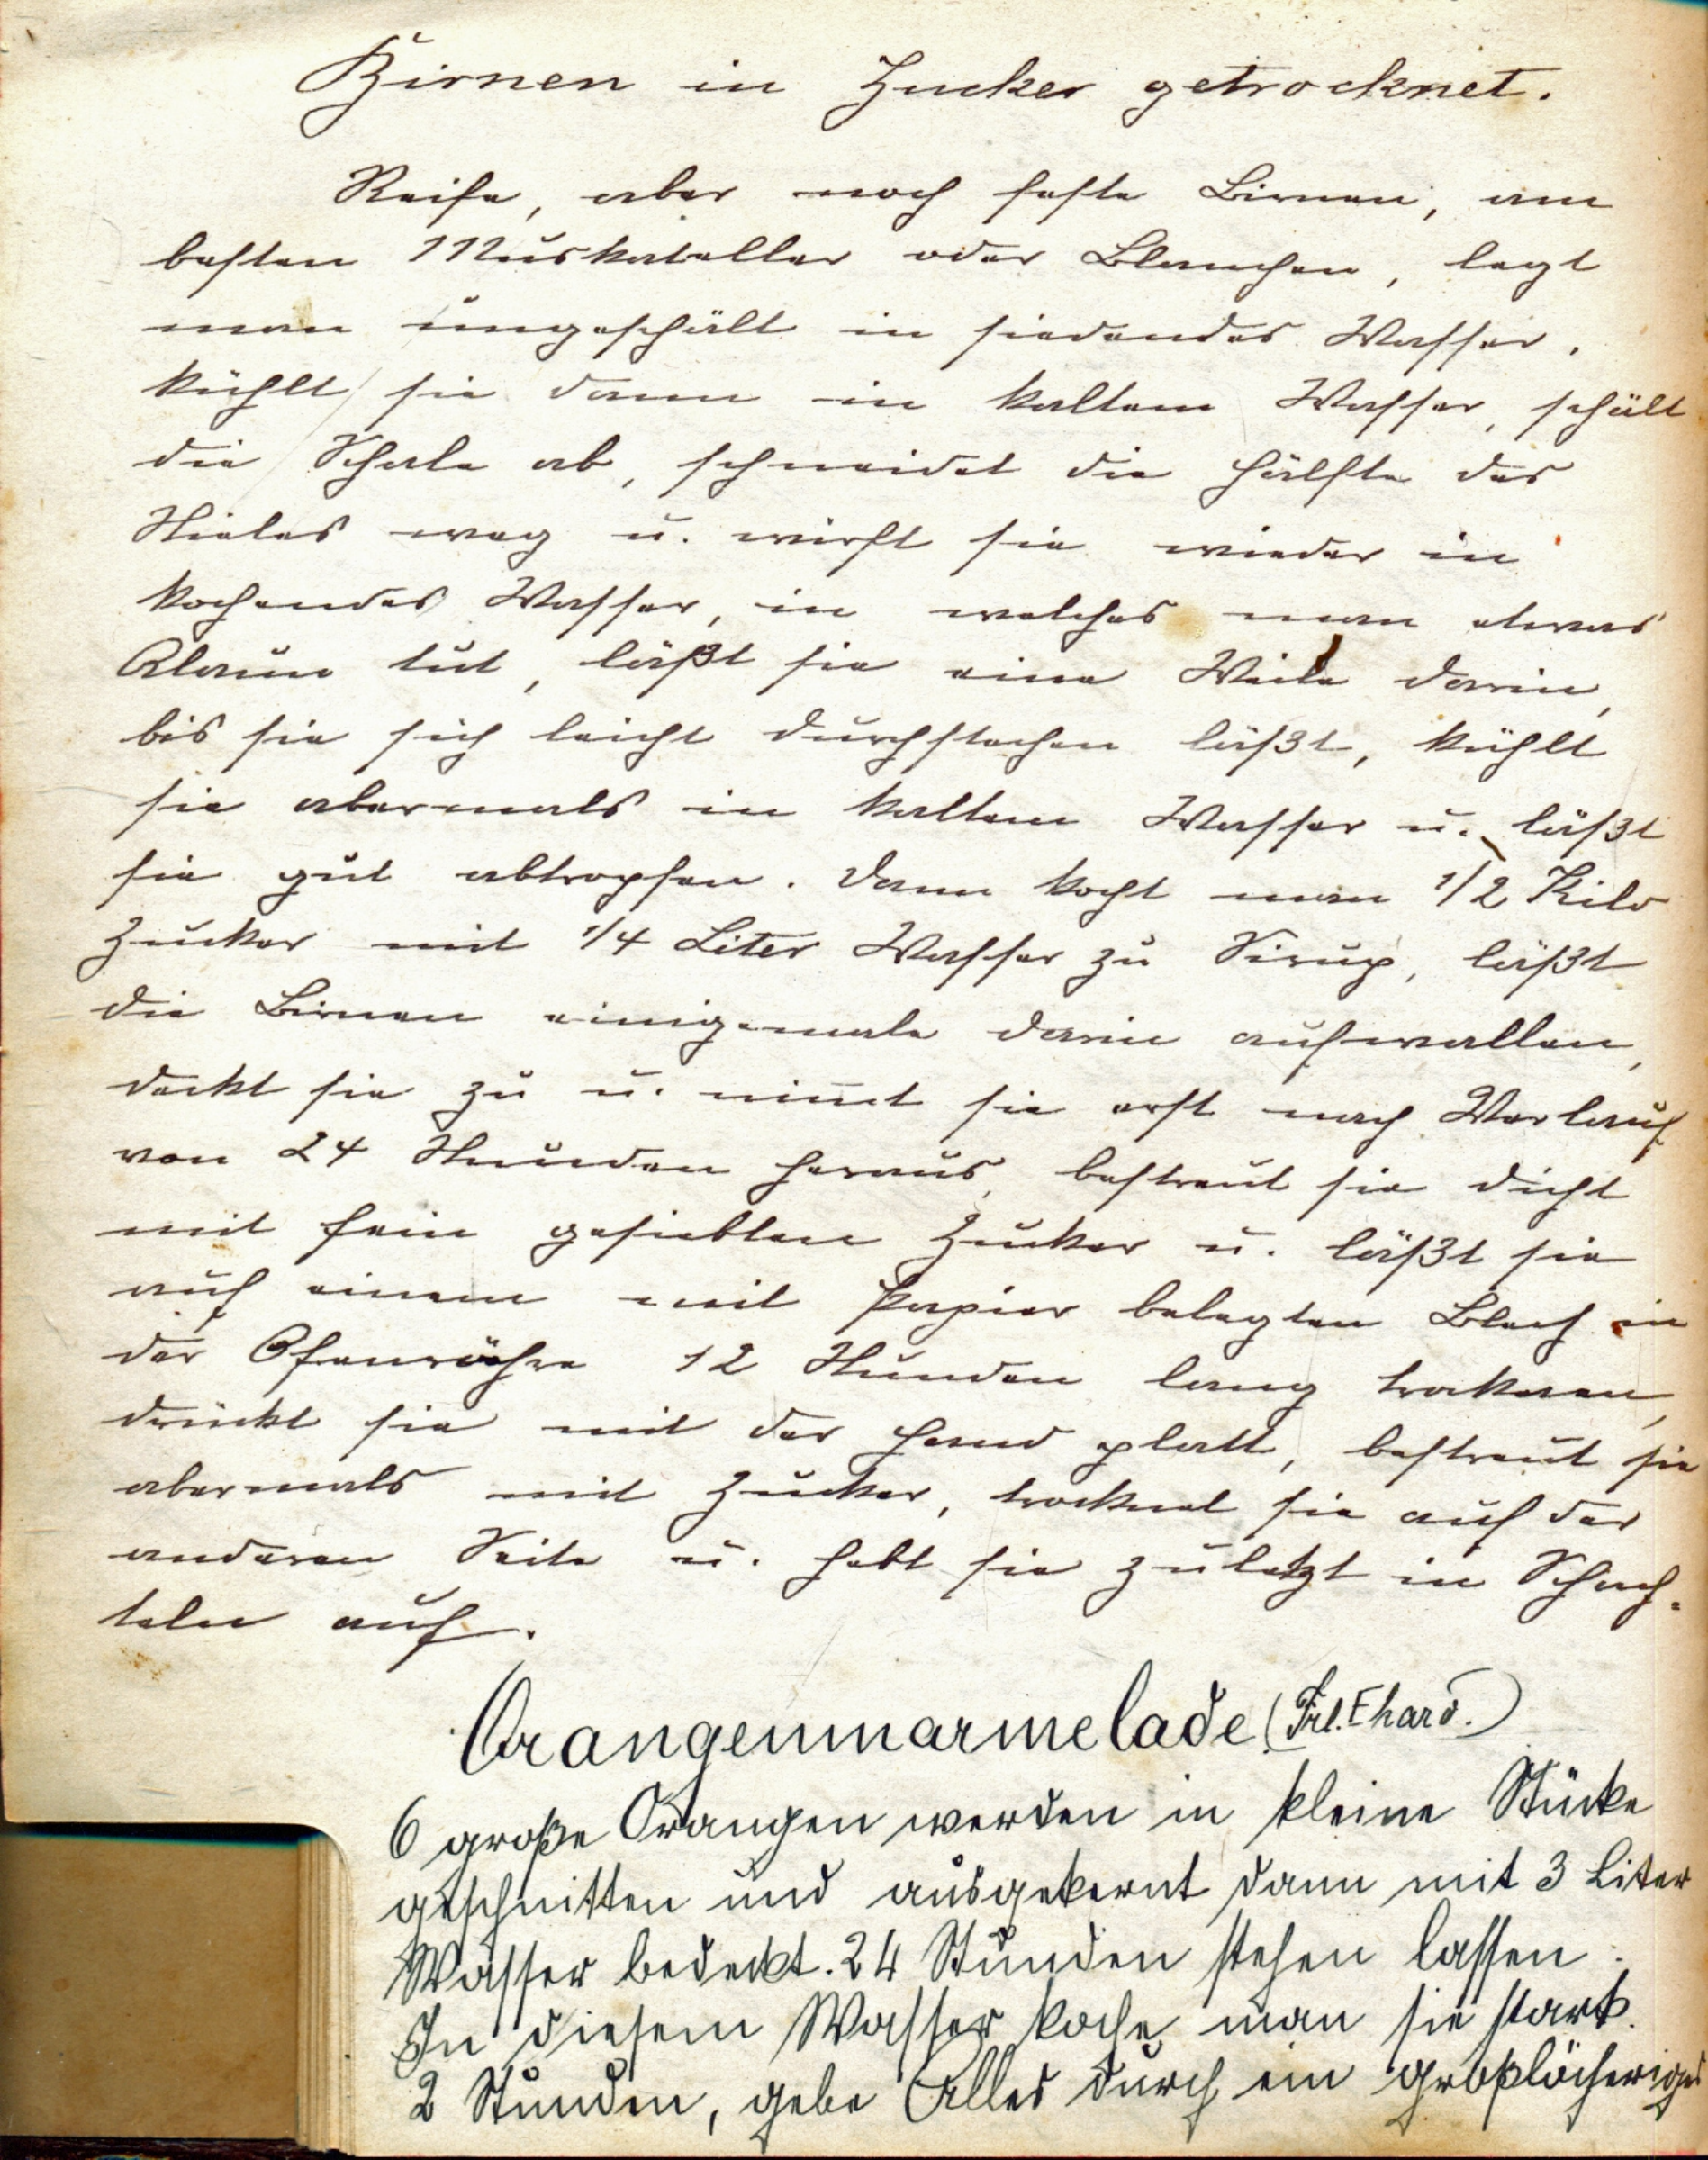 Birnen in Zucker getrocknet.
Reife, aber noch feste Birnen, am
besten Muskateller oder Blanchen, legt
man ungeschält in siedendes Wasser,
kühlt sie dann in kaltem Wasser, schält
die Schale ab, schneidet die Hälfte des
Stieles weg u. wirft sie wieder in
kochendes Wasser, in welches man etwas
Alaun tut, läßt sie eine Weile darin,
bis sie sich leicht durchstechen läßt, kühlt
sie abermals in kaltem Wasser u. läßt
sie gut abtropfen. Dann kocht man 1/2 Kilo
Zucker mit 1/4 Liter Wasser zu Sirup, läßt
die Birnen einigemale darin aufwallen,
deckt sie zu u. nim̅t sie erst nach Verlauf
von 24 Stunden heraus, bestreut sie dicht
mit fein gesiebten Zucker u. läßt sie
auf einem mit Papier belegten Blech in
der Ofenröhre 12 Stunden lang trocknen,
drückt sie mit der Hand platt, bestreut sie
abermals mit Zucker, trocknet sie auf der
anderen Seite u. hebt sie zuletzt in Schach-
teln auf.
Orangenmarmelade (Frl. Ehard.)
6 große Orangen werden in kleine Stücke
geschnitten und ausgekernt dann mit 3 Liter
Wasser bedeckt. 24 Stunden stehen lassen.
In diesem Wasser koche man sie stark
2 Stunden, gebe Alles durch ein großlöcheriges